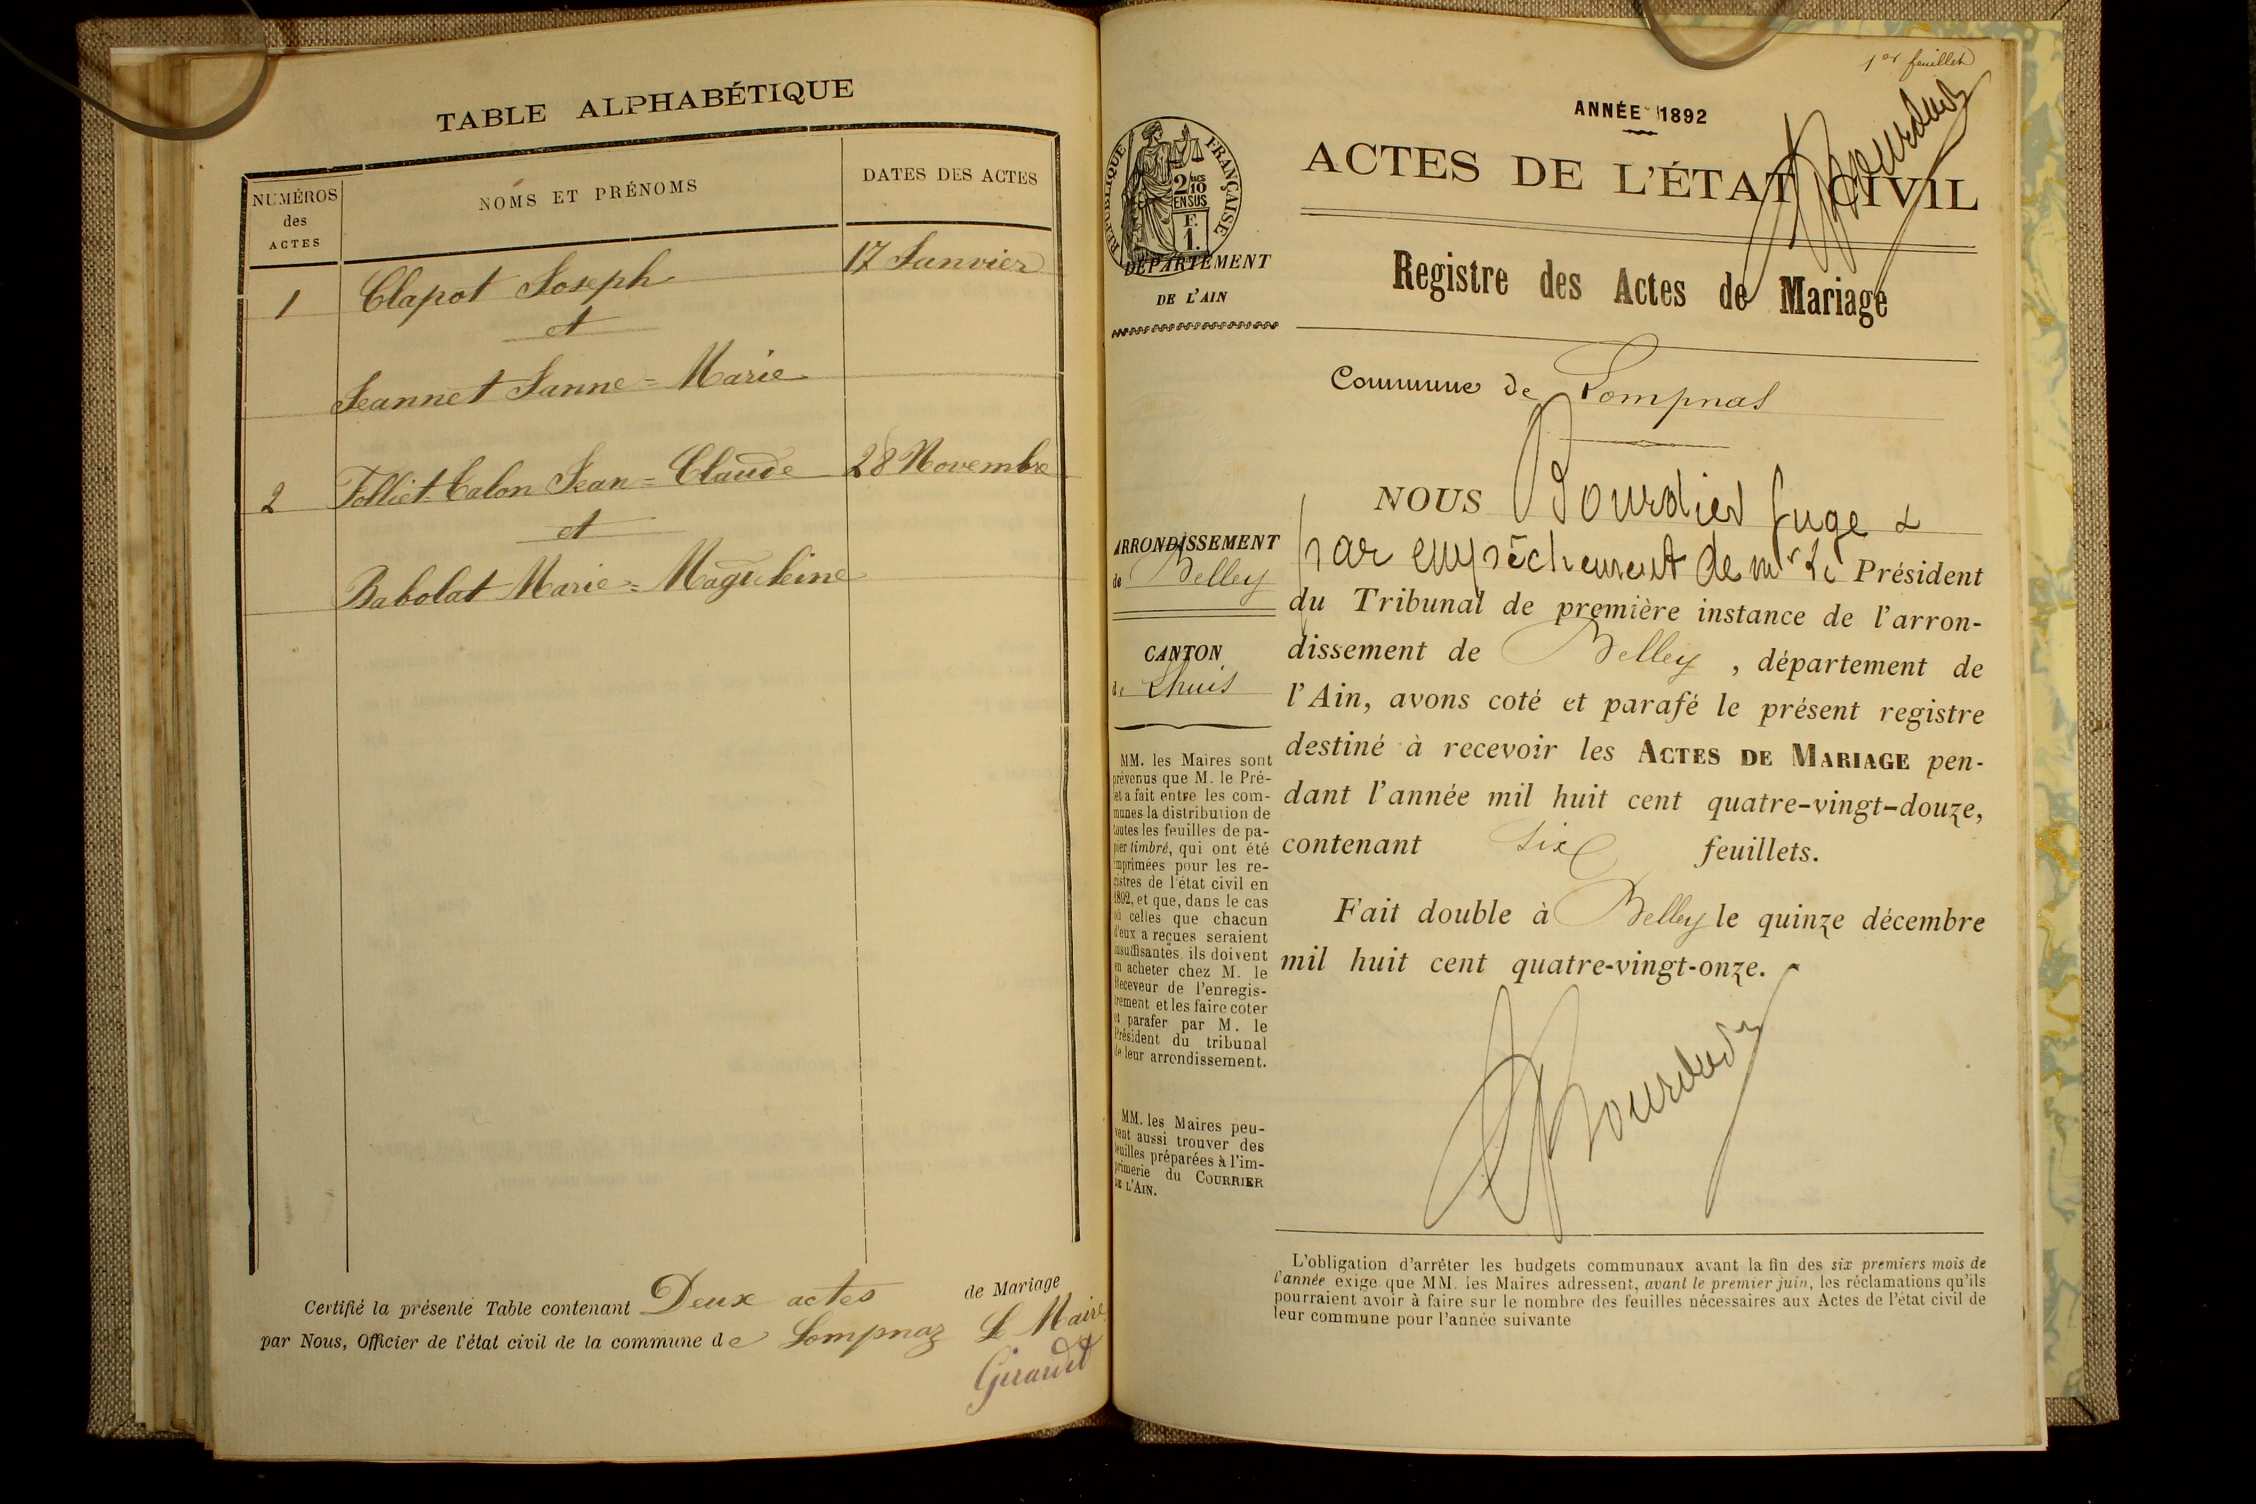 TABLE ALPHABÉTIQUE
NUMÉROS
des
ACTES
NOMS ET PRÉNOMS
DATES DES ACTES
1 Clapot Joseph 17 Janvier
et
Jeannet Janne=Marie
2 Folliet-Calon Jean=Claude 28 Novembre
et
Babolat Marie=Magdeleine
Certifié la présente Table contenant Deux actes de Mariage
par Nous, Officier de l'état civil de la commune de Lompnaz Le Maire
Giraudet
1er feuillet
ANNÉE 1892
Bourdier
RÉPUBLIQUE FRANÇAISE
2/10
EN SUS
F.
1.
DÉPARTEMENT
DE L'AIN
ACTES DE L'ÉTAT CIVIL
Registre des Actes de Mariage
Commune de Lompnas
ARRONDISSEMENT
de Belley
CANTON
de Lhuis
MM. les Maires sont
prévenus que M. le Pré-
fet a fait entre les com-
munes la distribution de
toutes les feuilles de pa-
pier timbré, qui ont été
imprimées pour les re-
gistres de l'état civil en
1892, et que, dans le cas
où celles que chacun
d'eux a reçues seraient
insuffisantes, ils doivent
en acheter chez M. le
Receveur de l'enregis-
trement et les faire coter
et parafer par M. le
Président du tribunal
de leur arrondissement.
MM. les Maires peu-
vent aussi trouver des
feuilles préparées à l'im-
primerie du COURRIER
DE L'AIN.
NOUS Bourdier Juge &
par empêchement de Mr le Président
du Tribunal de première instance de l'arron-
dissement de Belley, département de
l'Ain, avons coté et parafé le présent registre
destiné à recevoir les ACTES DE MARIAGE pen-
dant l'année mil huit cent quatre-vingt-douze,
contenant six feuillets.
Fait double à Belley le quinze décembre
mil huit cent quatre-vingt-onze.
Bourdier
L'obligation d'arrêter les budgets communaux avant la fin des six premiers mois de
l'année exige que MM. les Maires adressent, avant le premier juin, les réclamations qu'ils
pourraient avoir à faire sur le nombre des feuilles nécessaires aux Actes de l'état civil de
leur commune pour l'année suivante